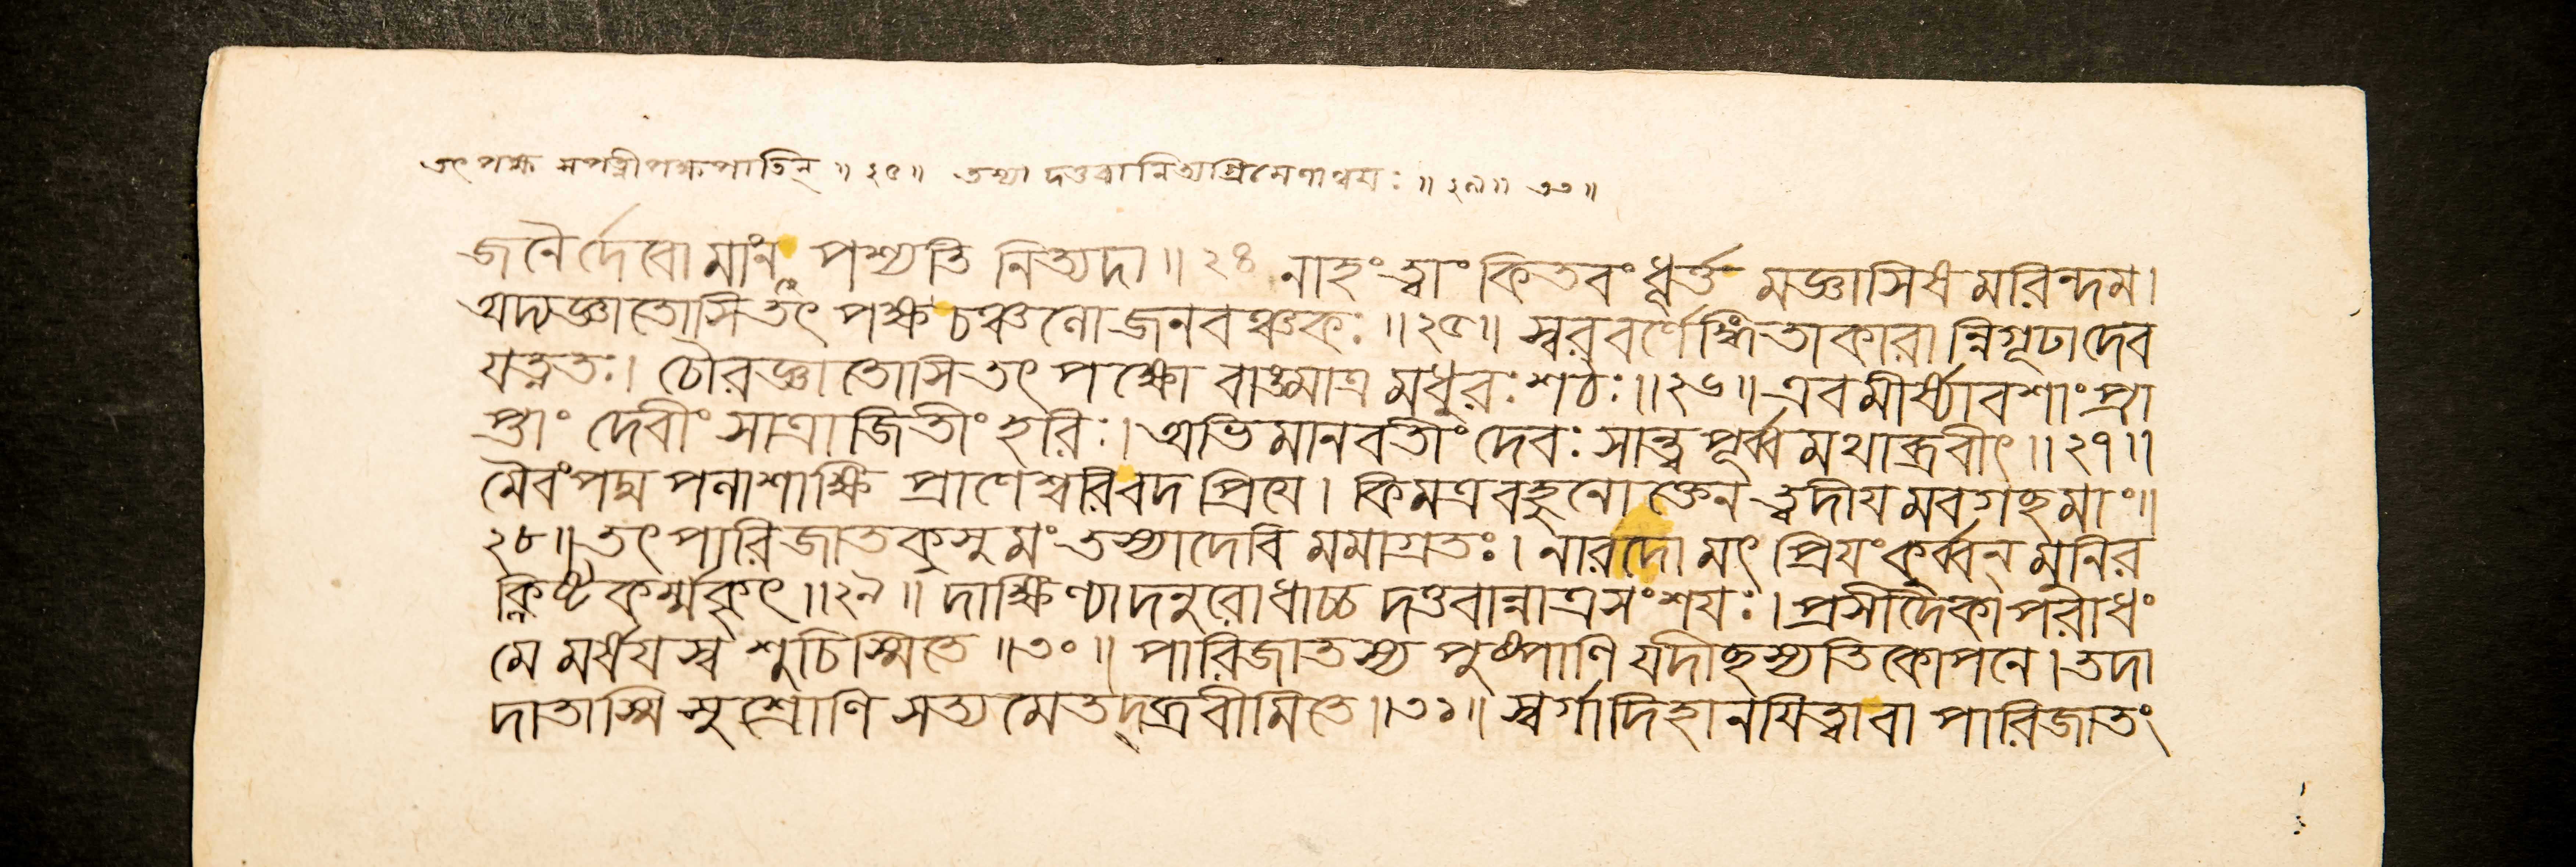 তৎ পক্ষ সপত্নীপক্ষপাতিন্ ॥ ২৫ ॥ তস্যা দত্তবানিতি অগ্রিমেণান্বয়ঃ ॥ ২৯ ॥ ৩০ ॥
জনৈর্দেবো মাং ন পশ্যতি নিত্যদা ॥ ২৪ নাহং ত্বাং কিতবং ধূর্ত্ত মজ্ঞাসিষ মরিন্দম ।
অদ্যজ্ঞাতোসি তৎ পক্ষ চঞ্চলো জনবঞ্চকঃ ॥ ২৫ ॥ স্বরবর্ণেঙ্গিতাকারা ন্নিগূঢাদেব
যত্নতঃ । চৌরজ্ঞাতোসি তৎ পক্ষো বাঙ্মাত্র মধুরঃ শঠঃ ॥ ২৬ ॥ এবমীর্ষ্যাবশাং প্রা
প্তাং দেবীং সাত্রাজিতীং হরিঃ । অভিমানবতীং দেবঃ সান্ত্বপূর্ব্ব মথাব্রবীৎ ॥ ২৭ ॥
মৈবং পদ্ম পলাশাক্ষি প্রাণেশ্বরি বদ প্রিয়ে । কিমত্র বহুনোক্তেন ত্বদীয় মবগচ্ছ মাং ॥
২৮ ॥ তৎ পারিজাতকুসুমং তস্যা দেবি মমাগ্রতঃ । নারদো মৎ প্রিয়ং কুর্ব্বন্ মুনির
ক্লিষ্টকর্ম্মকৃৎ ॥ ২৯ ॥ দাক্ষিণ্যাদনুরোধাচ্চ দত্তবান্নাত্র সংশয়ঃ । প্রসীদৈকাপরাধং
মে মর্ষয়স্ব শুচিস্মিতে ॥ ৩০ ॥ পারিজাতস্য পুষ্পাণি যদীচ্ছস্যতিকোপনে । তদা
দাতাস্মি সুশ্রোণি সত্য মেতদ্ ব্রবীমি তে ॥ ৩১ ॥ স্বর্গাদিহানয়িত্বা বা পারিজাতং